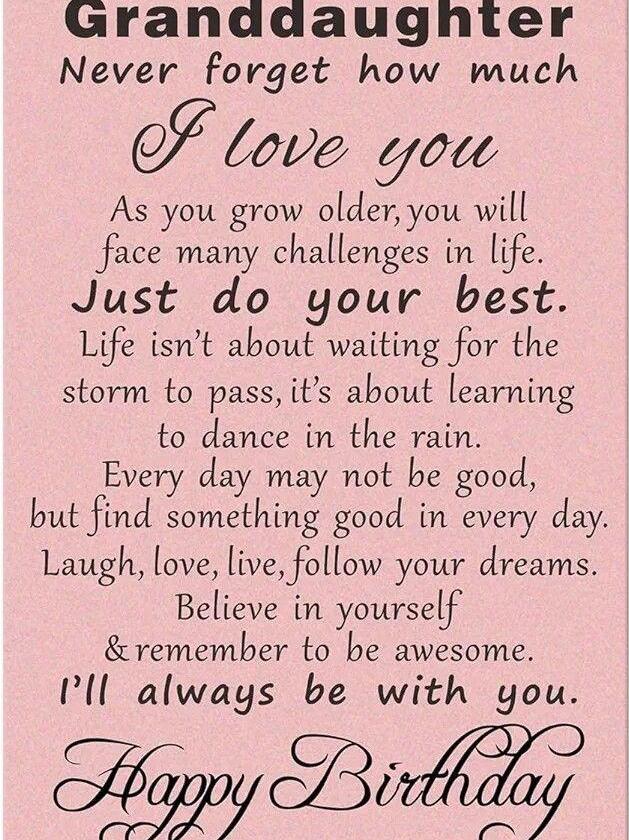 Granddaughter
Never forget how much
I love you
As you grow older, you will
face many challenges in life.
Just do your best.
Life isn't about waiting for the
storm to pass, it's about learning
to dance in the rain.
Every day may not be good,
but find something good in every day.
Laugh, love, live, follow your dreams.
Believe in yourself
& remember to be awesome.
I'll always be with you.
Happy Birthday